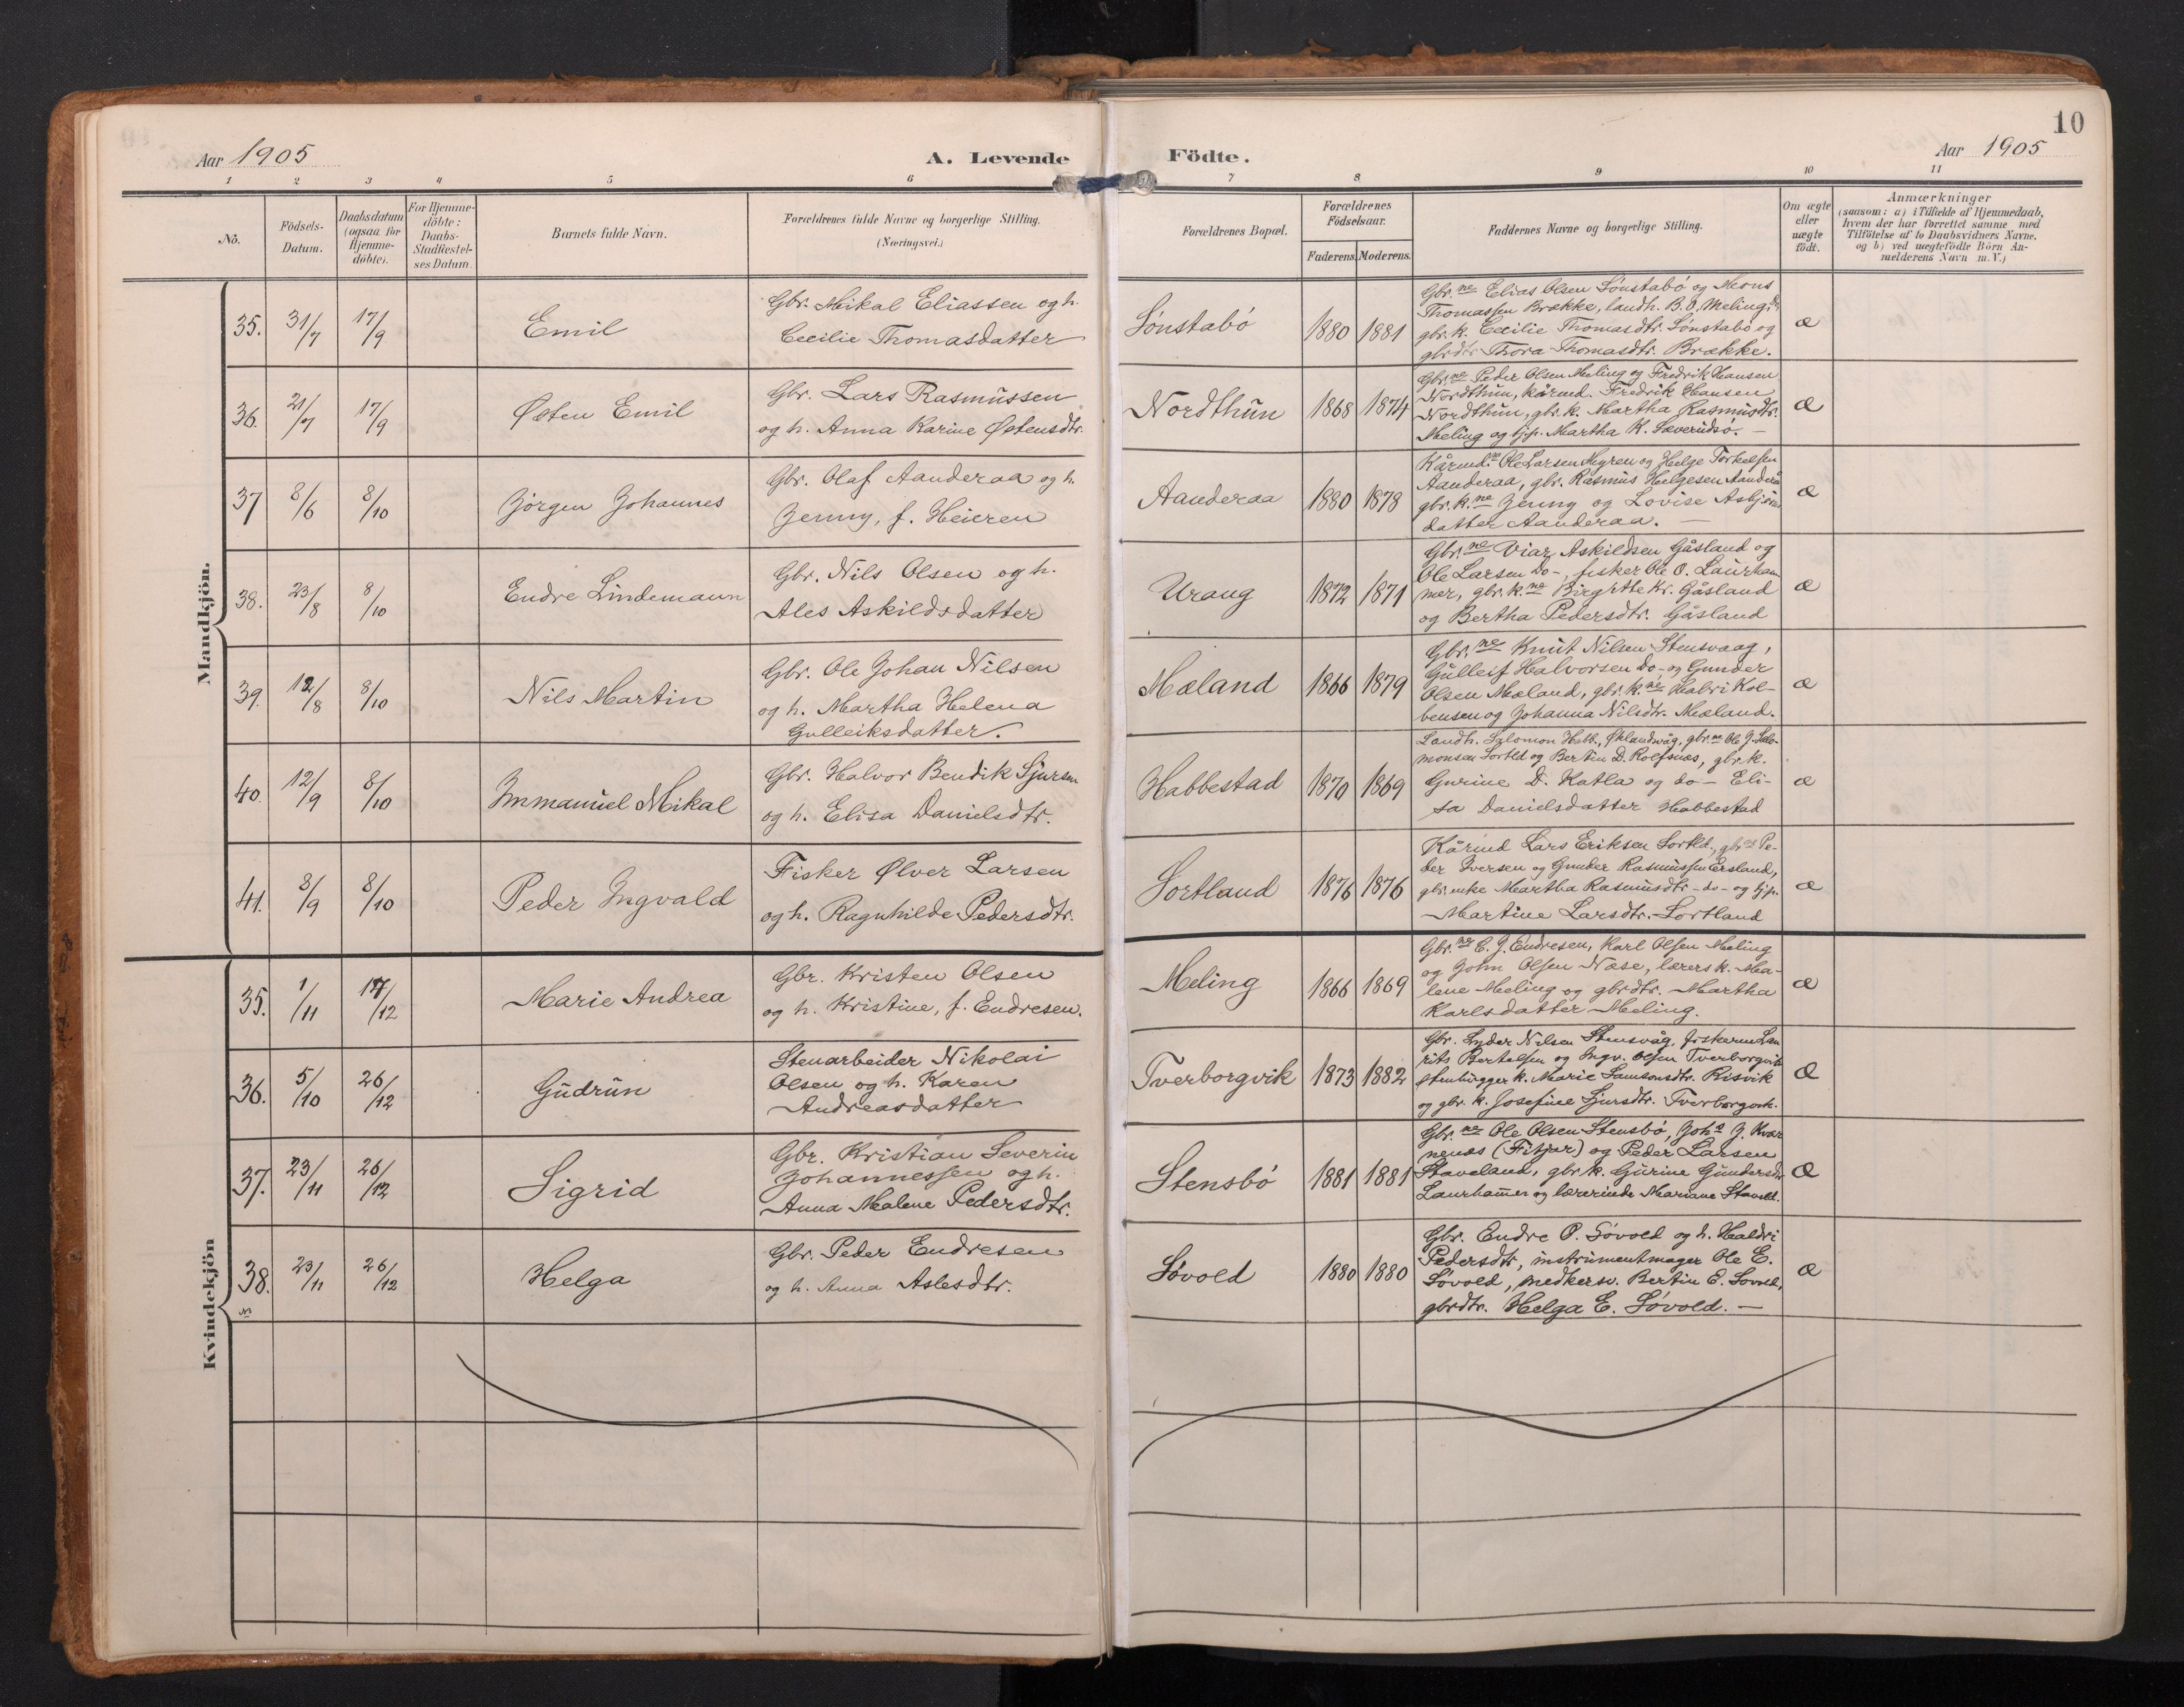 10
Aar 1905
A. Levende
Födte.
Aar 1905
1 2 3 4 5 6 7 8 9 10 11
No.
Födsels-Datum.
Daabsdatum (ogsaa for Hjemme-döbte).
For Hjemme-döbte: Daabs-Stadfæstel-ses Datum.
Barnets fulde Navn.
Forældrenes fulde Navne og borgerlige Stilling.
(Næringsvei.)
Forældrenes Bopæl.
Forældrenes Födselsaar.
Faderens. Moderens.
Faddernes Navne og borgerlige Stilling.
Om ægte eller uægte födt.
Anmærkninger
(saasom: a) i Tilfælde af Hjemmedaab,
hvem der har forrettet samme med
Tilföielse af to Daabsvidners Navne,
og b) ved uægtefödte Börn An-
melderens Navn m.V.)
Mandkjön.
35. 31/7 17/9 Emil
Gbr. Mikal Eliassen og h.
Cecilie Thomasdatter
Sønstabø 1880 1881
Gbr.ne Elias Olsen Sønstabø og Mons
Thomassen Brække, landh. B.O. Meling,
gbr.k. Cecilie Thomasdtr. Sønstabø og
gbrdtr Thora Thomasdtr. Brække.
æ
36. 21/7 17/9 Østen Emil
Gbr. Lars Rasmussen
og h. Anna Karine Østensdtr.
Nordthun 1868 1874
Gbr.ne Peder Olsen Meling og Fredrik Hansen
Nordthun, kårmd. Fredrik Hansen
Nordthun, gbr.k. Martha Rasmusdtr.
Meling og tjp. Martha K. Sæverudsø. —
æ
37 8/6 8/10 Jörgen Johannes
Gbr. Olaf Aanderaa og h.
Jenny, f. Heieren
Aanderaa 1880 1878
Kårmd.ne Ole Larsen Myren og Helge Torkelsen
Aanderaa, gbr. Rasmus Helgesen Aanderå
gbr.k.ne Jenny og Lovise Asbjörns
datter Aanderaa. —
æ
38. 23/8 8/10 Endre Lindemann
Gbr. Nils Olsen og h.
Ales Askildsdatter
Urang 1872 1871
Gbr.ne Viar Askildsen Gåsland og
Ole Larsen do-, fisker Ole O. Laurham
mer, gbr.k.ne Birgitte Kr. Gåsland
og Bertha Pedersdtr. Gåsland
æ
39. 12/8 8/10 Nils Martin
Gbr. Ole Johan Nilsen
og h. Martha Helena
Gulleiksdatter.
Mæland 1866 1879
Gbr.ne Knut Nilsen Stensvaag,
Gulleif Halvorsen do- og Gunder
Olsen Mæland, gbr.k.ne Habri Kol-
bensen og Johanna Nilsdtr. Mæland.
æ
40. 12/9 8/10 Immanuel Mikal
Gbr. Halvor Bendik Sjursen
og h. Elisa Danielsdtr.
Habbestad 1870 1869
Landh. Salomon Habb., Øklandsvåg, gbr.ne Ole J. Salo-
monsen Sortld og Bertin D. Rolfsnæs, gbr.k.
Gurine D. Katla og do— Eli-
sa Danielsdatter Habbestad
æ
41. 8/9 8/10 Peder Ingvald
Fisker Ølver Larsen
og h. Ragnhilde Pedersdtr.
Sortland 1876 1876
Kårmd Lars Eriksen Sortld., gbrne Pe-
der Iversen og Gunder Rasmussen Eersland,
gbr.enke Martha Rasmusdtr -do- og tjp.
Martine Larsdtr. Sortland
æ
Kvindekjön
35. 1/11 17/12 Marie Andrea
Gbr. Kristen Olsen
og h. Kristine, f. Endresen.
Meling 1866 1869
Gbr.ne C. J. Endresen, Karl Olsen Meling
og John Olsen Næse, lærersk. Ma-
lene Meling og gbrdtr. Martha
Karlsdatter Meling.
æ
36. 5/10 26/12 Gudrun
Stenarbeider Nikolai
Olsen og h. Karen
Andreasdatter
Tverborgvik 1873 1882
Gbr. Lyder Nilsen Stensvåg, fiskerne Lau
rits Bertelsen og Ingv. Olsen Tverborgvik
stenhugger k. Marie Samsonsdtr. Risvik
og gbr.k. Josefine Sjursdtr. Tverborgvk.
Æ
37. 23/11 26/12 Sigrid
Gbr. Kristian Severin
Johannessen og h.
Anna Malene Pedersdtr.
Stensbø 1881 1881
Gbr.ne Ole Olsen Stensbø, Johs J. Kvar
nenæs (Fitjar) og Peder Larsen
Staveland, gbr.k. Gurine Gundersdtr
Laurhammer og lærerinde Mariane Staveld.
Æ
38. 23/11 26/12 Helga
Gbr. Peder Endresen
og h. Anna Aslesdtr.
Søvold 1880 1880
Gbr. Endre P. Søvold og h. Haldri
Pedersdtr, instrumentmager Ole E.
Søvold, Bertin E. Sovold,
gbrdtr. Helga E. Søvold. —
Æ